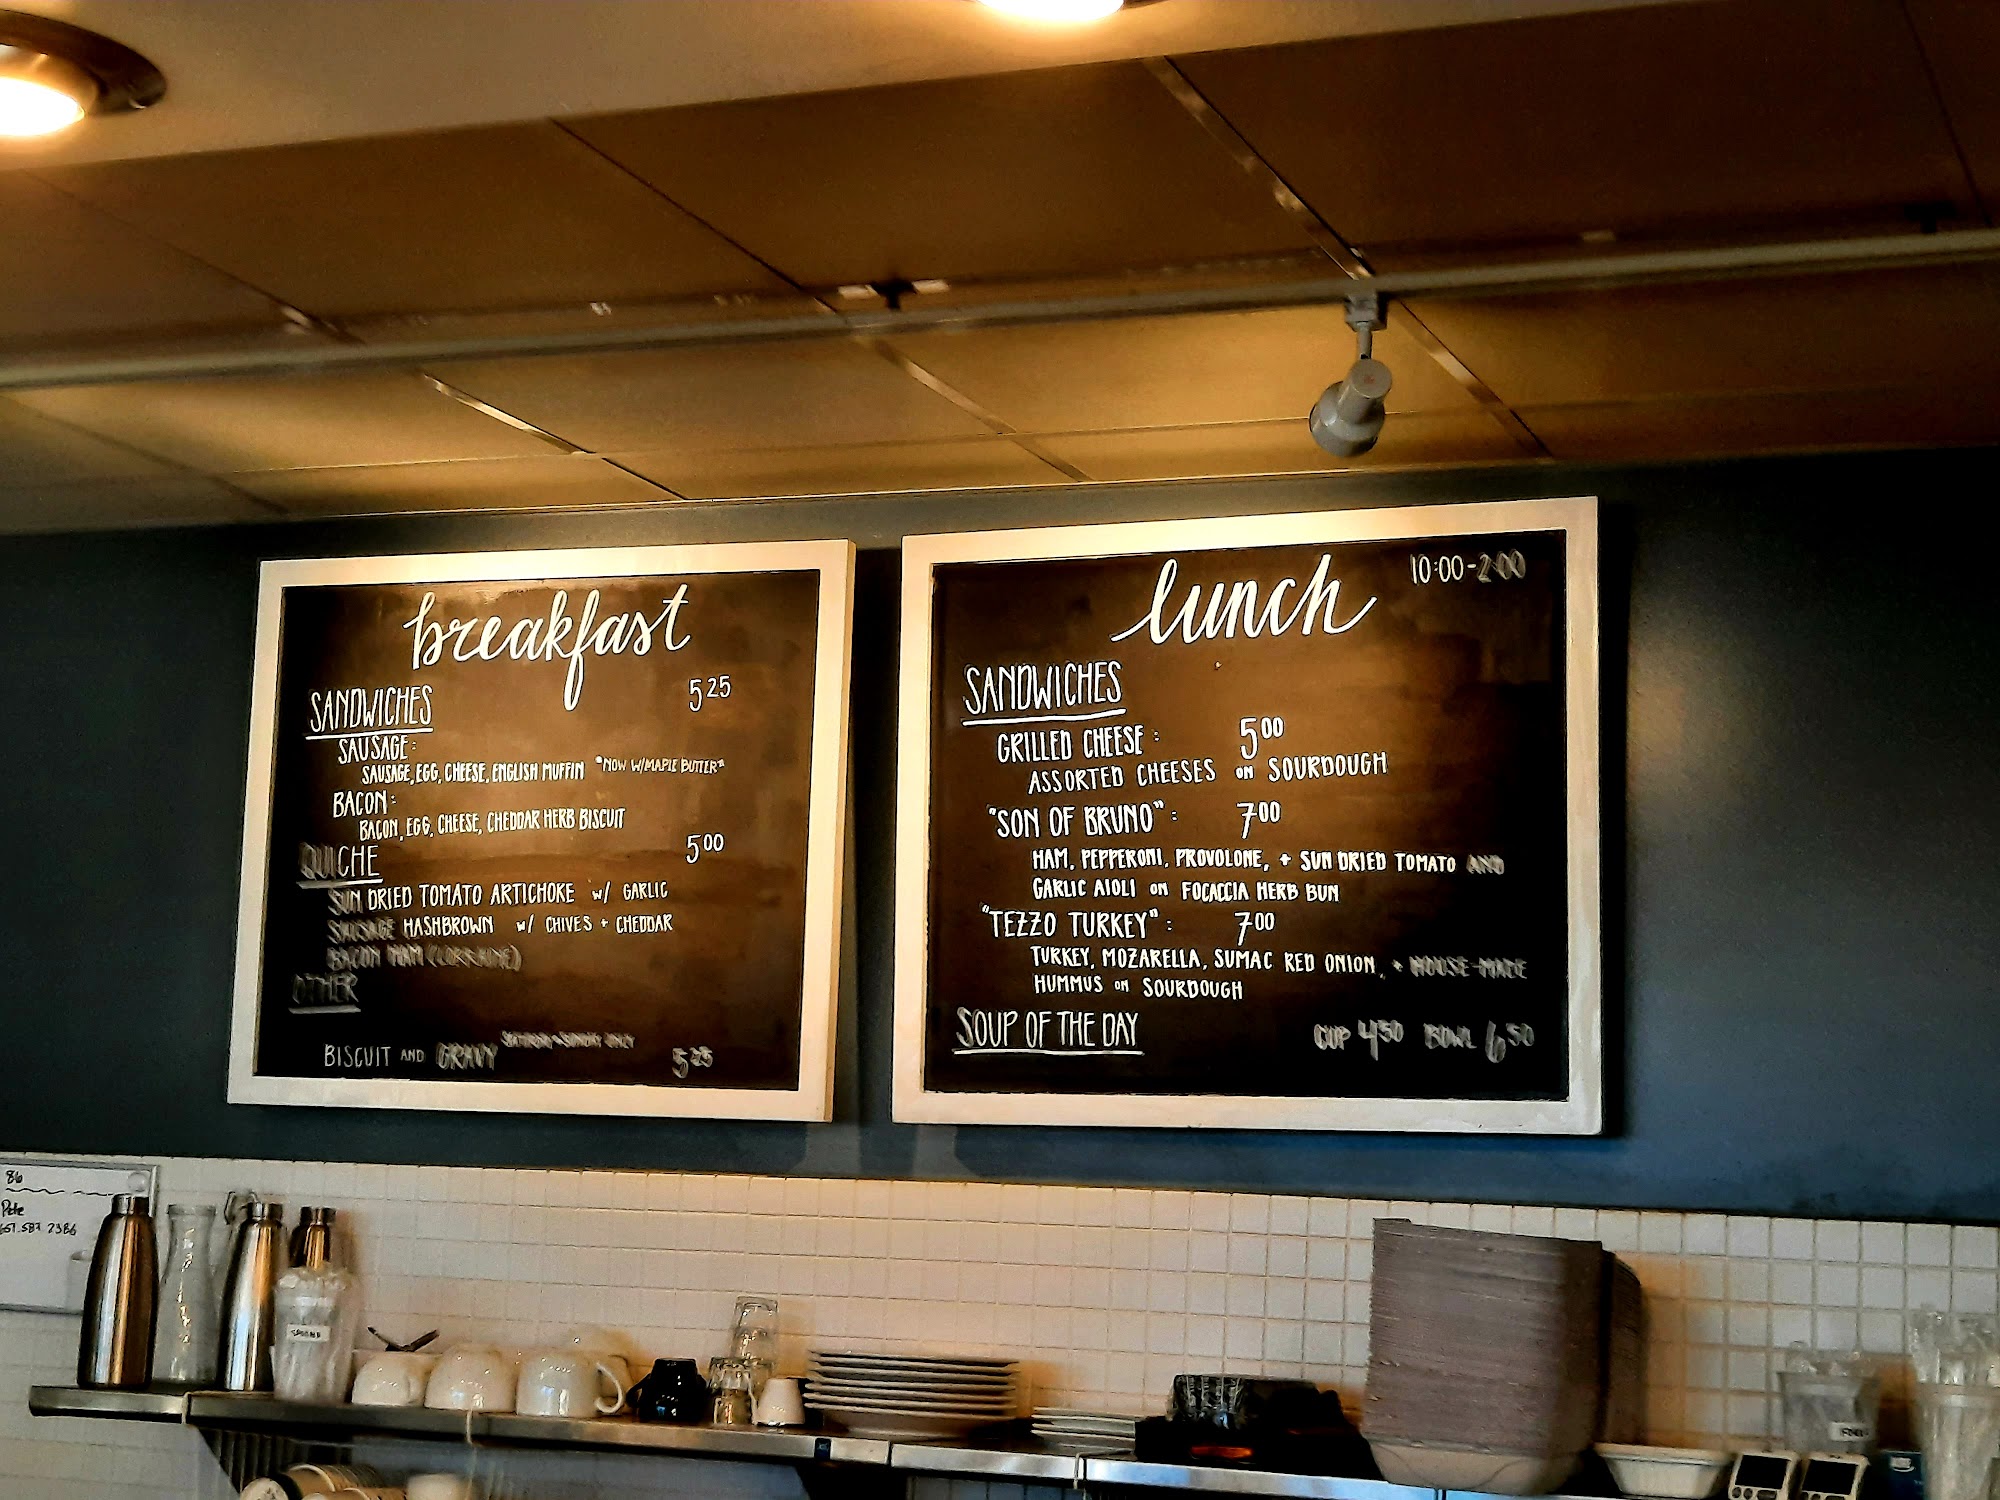 breakfast
SANDWICHES 5 25
SAUSAGE:
SAUSAGE, EGG, CHEESE, ENGLISH MUFFIN *NOW W/MAPLE BUTTER*
BACON:
BACON, EGG, CHEESE, CHEDDAR HERB BISCUIT
QUICHE 5 00
SUN DRIED TOMATO ARTICHOKE w/ GARLIC
SAUSAGE HASHBROWN w/ CHIVES + CHEDDAR
BACON HAM (LORRAINE)
OTHER
SATURDAY + SUNDAY ONLY
BISCUIT AND GRAVY 5 25
lunch 10:00-2:00
SANDWICHES
GRILLED CHEESE: 5 00
ASSORTED CHEESES ON SOURDOUGH
"SON OF BRUNO": 7 00
HAM, PEPPERONI, PROVOLONE, + SUN DRIED TOMATO AND
GARLIC AIOLI ON FOCACCIA HERB BUN
"TEZZO TURKEY": 7 00
TURKEY, MOZARELLA, SUMAC RED ONION, + HOUSE-MADE
HUMMUS ON SOURDOUGH
SOUP OF THE DAY CUP 4 50 BOWL 6 50
86
Pete
651.587.2386